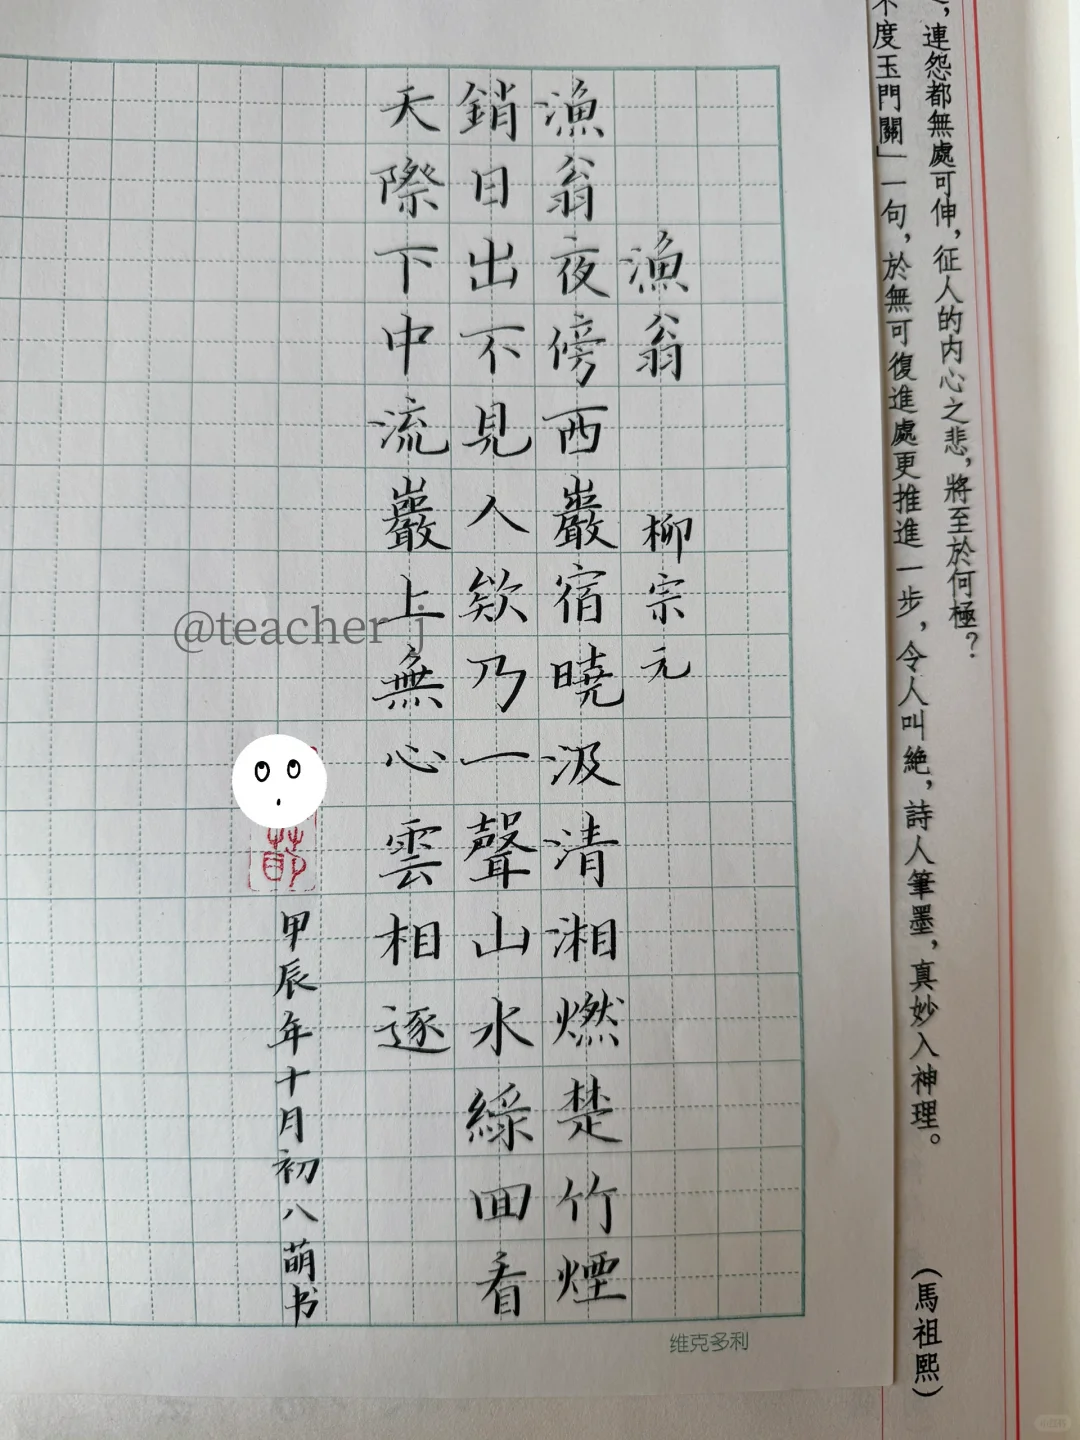 ，連怨都無處可伸，征人的内心之悲，將至於何極？
不度玉門關」一句，於無可復進處更推進一步，令人叫絶，詩人筆墨，真妙入神理。
（馬祖熙）
漁翁 柳宗元
漁翁夜傍西巖宿曉汲清湘燃楚竹煙
銷日出不見人欸乃一聲山水綠囬看
天際下中流巖上無心雲相逐
甲辰年十月初八萌书
维克多利
@teacher j
小红书